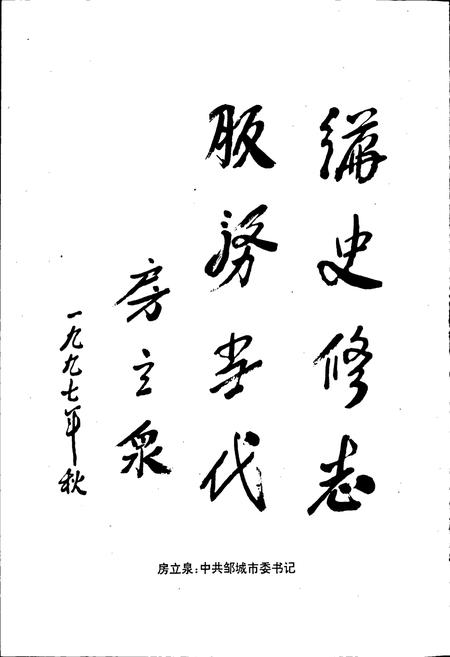 编史修志
服务当代
房立泉
一九九七年秋
房立泉：中共邹城市委书记